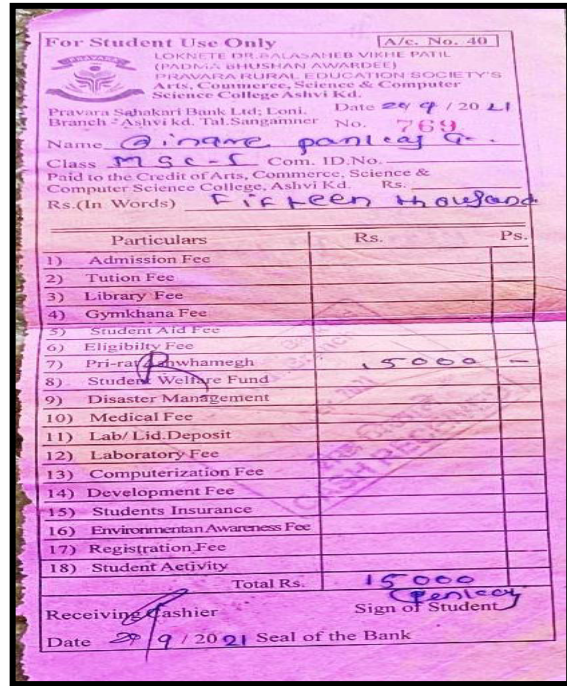 For Student Use Only A/c. No. 40
PRAVARA
LOKNETE DR.BALASAHEB VIKHE PATIL
(PADMA BHUSHAN AWARDEE)
PRAVARA RURAL EDUCATION SOCIETY'S
Arts, Commerce, Science & Computer
Science College Ashvi Kd.
Pravara Sahakari Bank Ltd; Loni. Date 29 9 / 2021
Branch - Ashvi kd. Tal.Sangamner No. 769
Name pankaj G.
Class MSC-I Com. ID.No.
Paid to the Credit of Arts, Commerce, Science &
Computer Science College, Ashvi Kd. Rs.
Rs.(In Words) Fifteen thousand
Particulars Rs. Ps.
1) Admission Fee
2) Tution Fee
3) Library Fee
4) Gymkhana Fee
5) Student Aid Fee
6) Eligibilty Fee
7) 15000 -
8) Student Welfare Fund
9) Disaster Management
10) Medical Fee
11) Lab/ Lid.Deposit
12) Laboratory Fee
13) Computerization Fee
14) Development Fee
15) Students Insurance
16) Environmentan Awareness Fee
17) Registration Fee
18) Student Activity
CASH RECEIVED
Total Rs. 15000
Pankaj
Receiving Cashier Sign of Student
Date 29 9 / 2021 Seal of the Bank